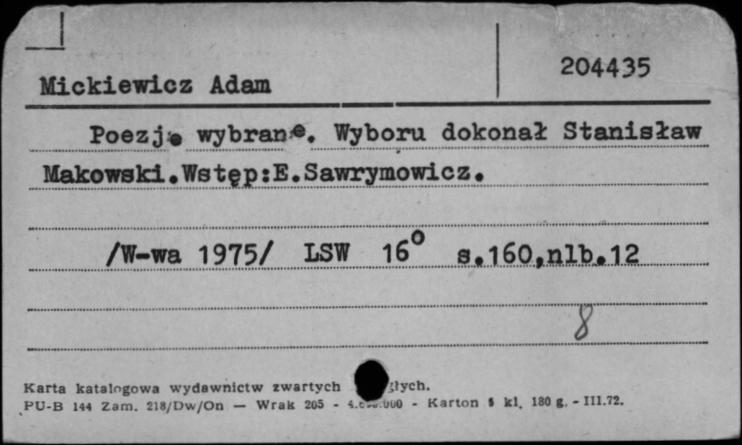 204435
Mickiewicz Adam
Poezje wybrane. Wyboru dokonał Stanisław
Makowski.Wstęp:E.Sawrymowicz.
/W-wa 1975/ LSW 16° s.160,nlb.12
8
Karta katalogowa wydawnictw zwartych
PU-B 144 Zam. 218/Dw/On — Wrak 205 - - Karton kl. 180 g. - III.72.